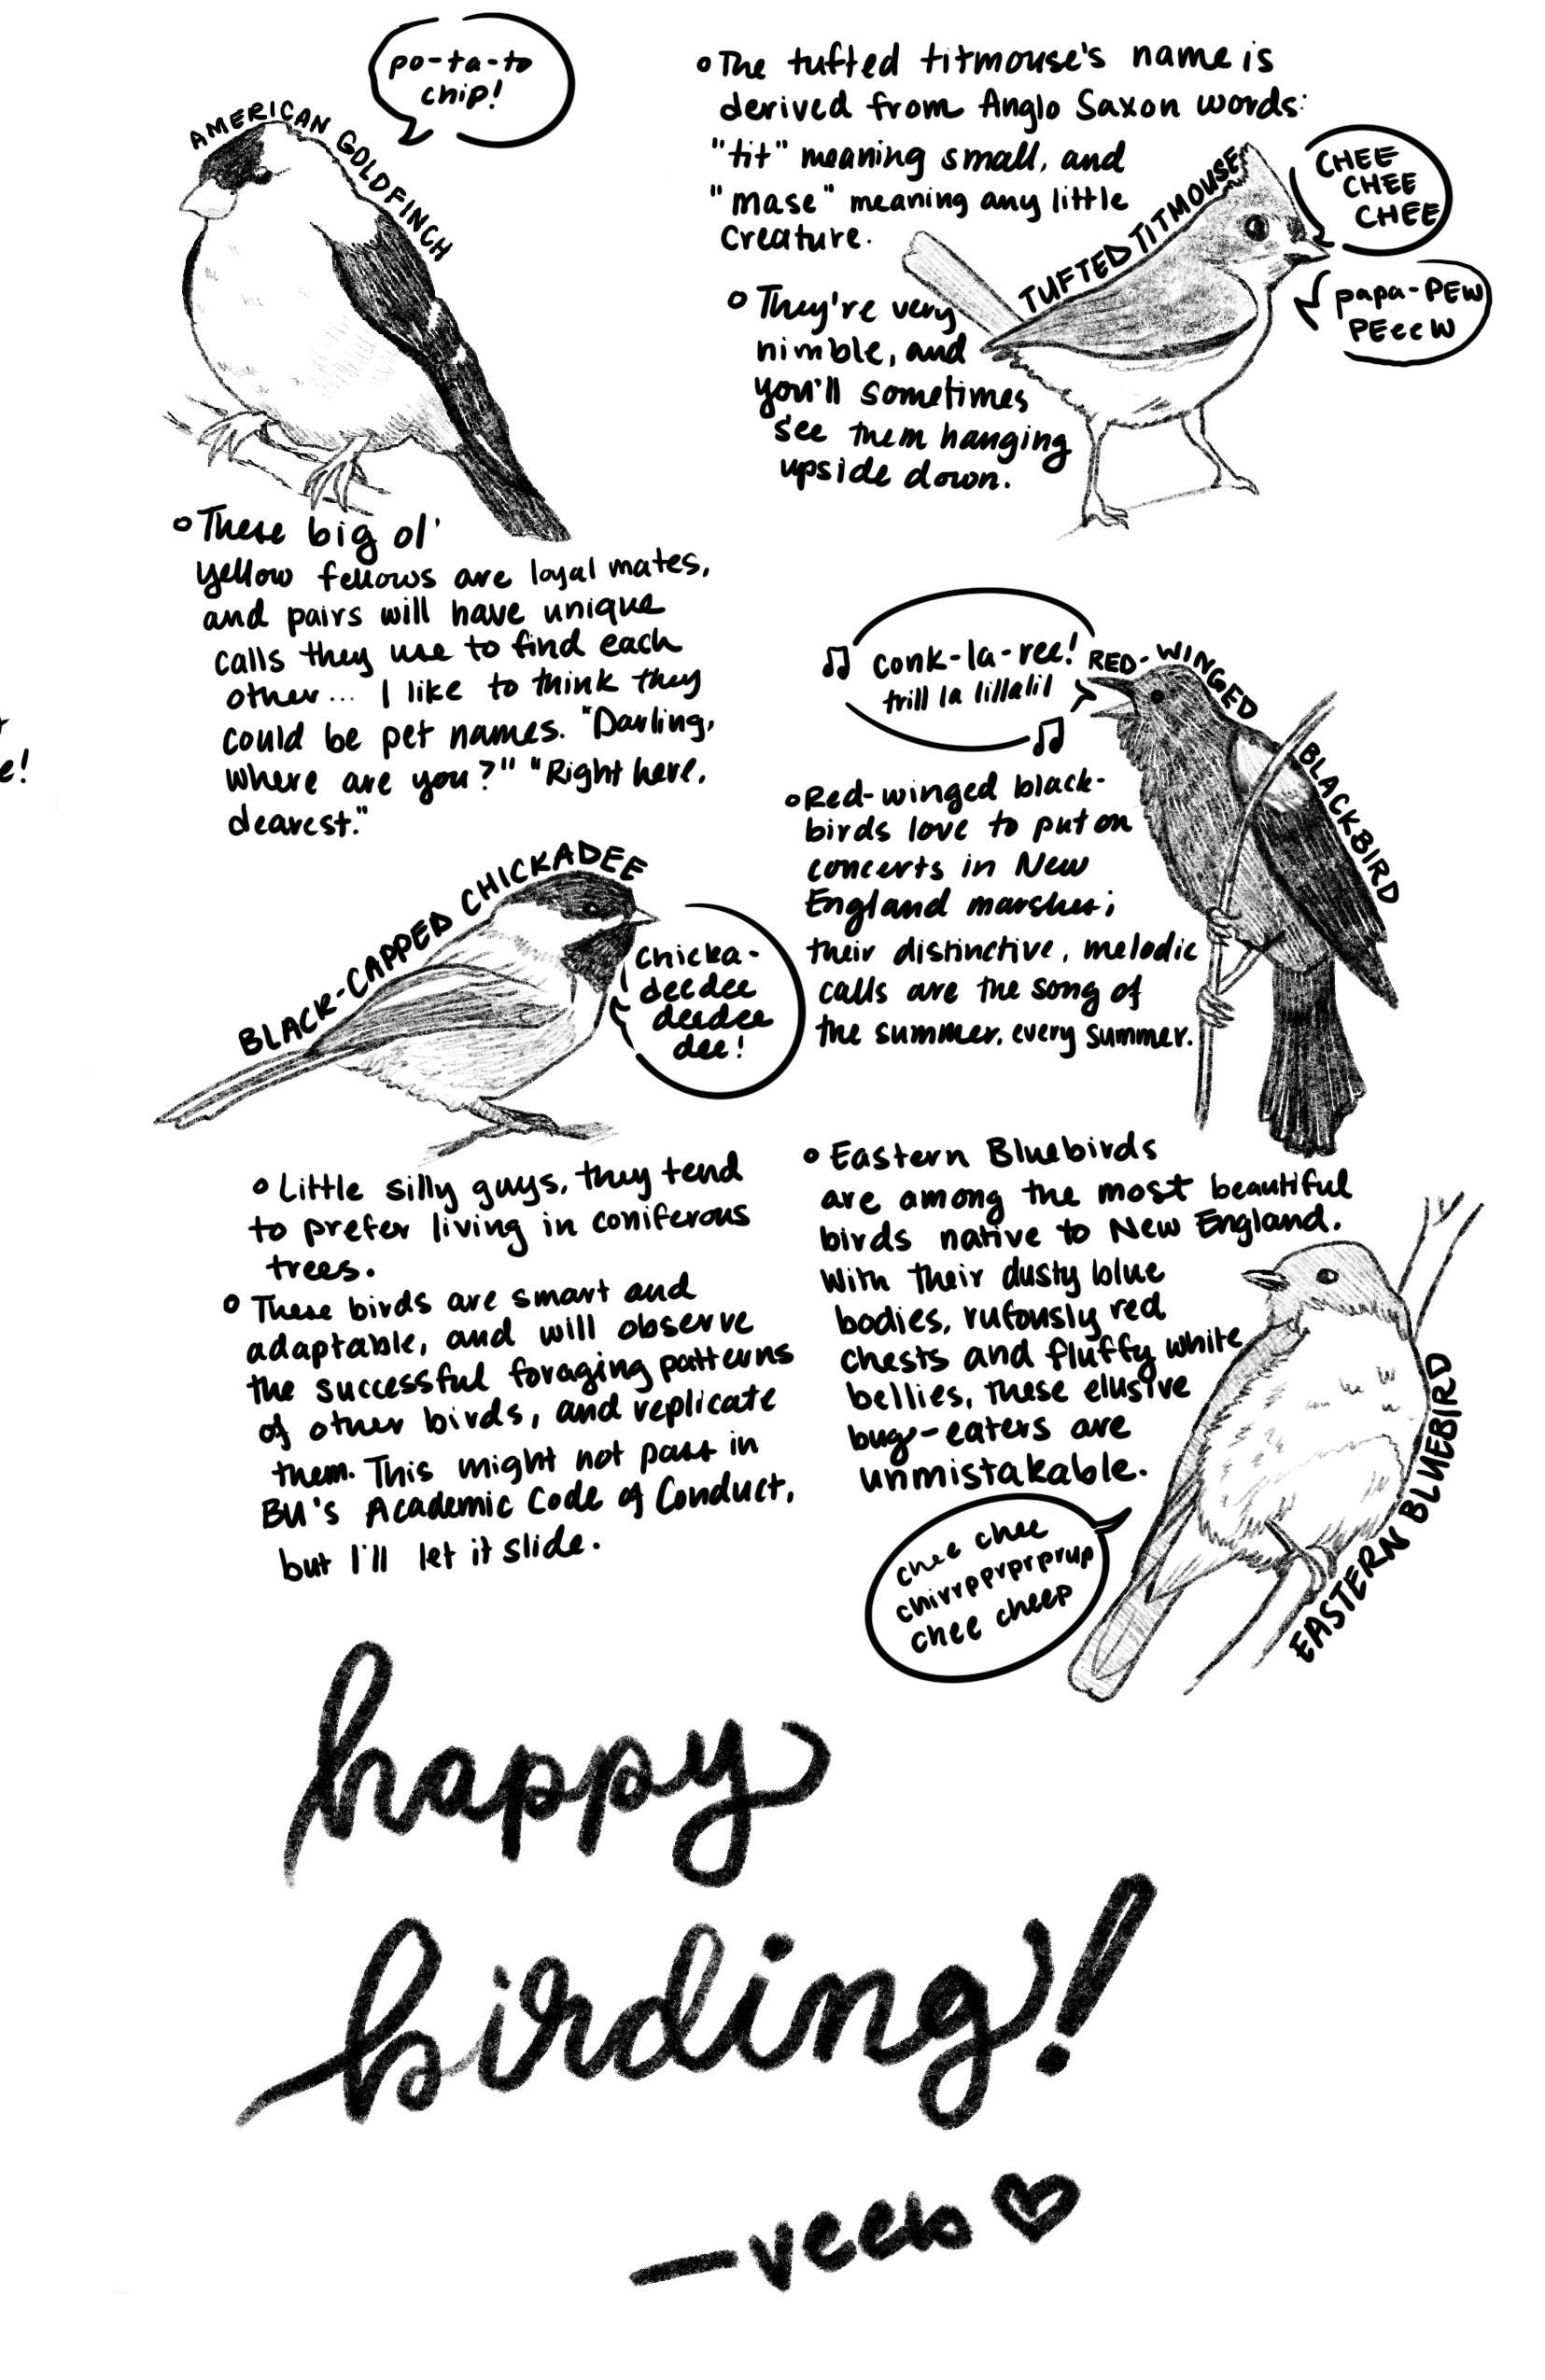 po-ta-to
chip!
AMERICAN GOLDFINCH
• These big ol'
yellow fellows are loyal mates,
and pairs will have unique
calls they use to find each
other... I like to think they
could be pet names. "Darling,
where are you?" "Right here,
dearest."
e!
BLACK-CAPPED CHICKADEE
Chicka-
deedee
deedee
dee!
• Little silly guys, they tend
to prefer living in coniferous
trees.
• These birds are smart and
adaptable, and will observe
the successful foraging patterns
of other birds, and replicate
them. This might not pass in
BU's Academic Code of Conduct,
but I'll let it slide.
• The tufted titmouse's name is
derived from Anglo Saxon words:
"tit" meaning small, and
"mase" meaning any little
creature.
TUFTED TITMOUSE
CHEE
CHEE
CHEE
papa-PEW
PEeeW
• They're very
nimble, and
you'll sometimes
see them hanging
upside down.
♫ conk-la-ree!
trill la lillalil
♫
RED-WINGED BLACKBIRD
• Red-winged black-
birds love to put on
concerts in New
England marshes;
their distinctive, melodic
calls are the song of
the summer, every summer.
• Eastern Bluebirds
are among the most beautiful
birds native to New England.
With their dusty blue
bodies, rufously red
chests and fluffy white
bellies, these elusive
bug-eaters are
unmistakable.
EASTERN BLUEBIRD
chee chee
chirrpprprprup
chee cheep
happy
birding!